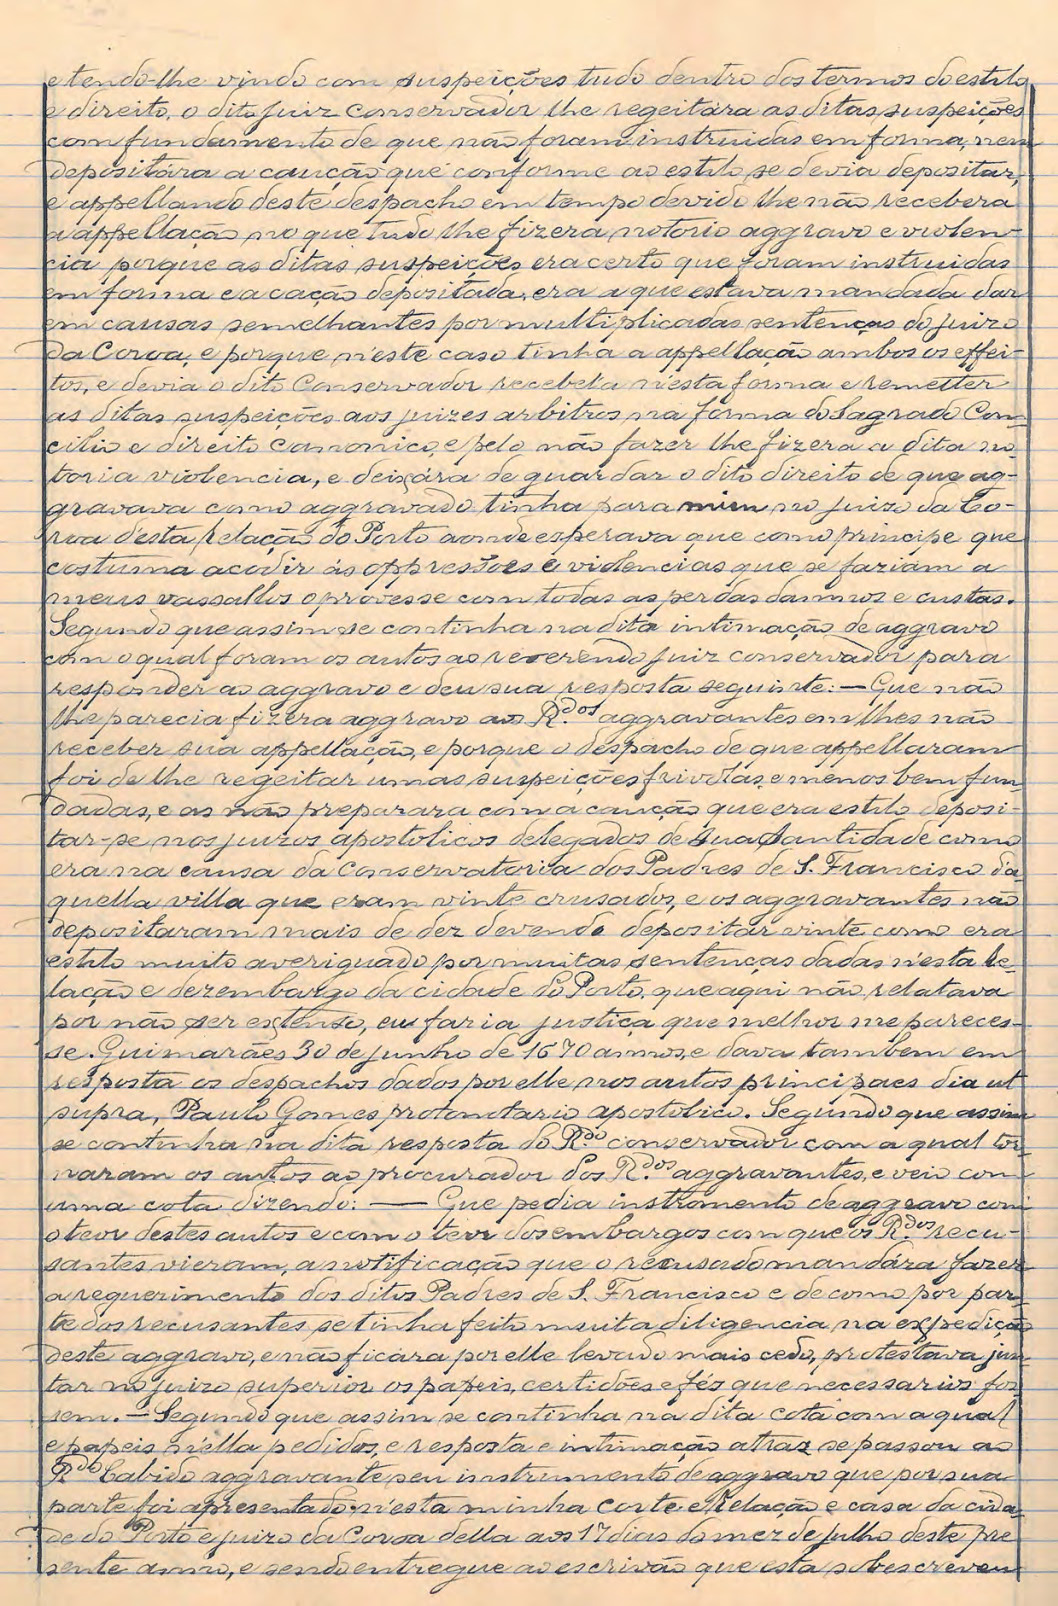 e tendo-lhe vindo com suspeições tudo dentro dos termos do estilo
e direito, o dito juiz conservador lhe regeitára as ditas suspeições
com fundamento de que não foram instruidas em forma, nem
depositára a caução que conforme ao estilo se devia depositar,
e appellando deste despacho em tempo devido lhe não recebera
a appellação no que tudo lhe fizera notorio aggravo e violen-
cia porque as ditas suspeições era certo que foram instruidas
em forma e a cação depositada, era a que estava mandada dar
em causas semelhantes por multiplicadas sentenças do juizo
da Coroa, e porque n'este caso tinha a appellação ambos os effei-
tos, e devia o dito Conservador recebel'a n'esta forma e remetter
as ditas suspeições aos juizes arbitros na forma do Sagrado Con-
cilio e direito canonico, e pelo não fazer lhe fizera a dita no-
toria violencia, e deixára de guardar o dito direito de que ag-
gravava como aggravado tinha para mim no juizo da Co-
roa d'esta relação do Porto aonde esperava que como principe que
costuma acodir ás oppressões e violencias que se faziam a
meus vassallos o provesse com todas as perdas damnos e custas.
Segundo que assim se continha na dita intimação de aggravo
com o qual foram os autos ao reverendo juiz conservador para
responder ao aggravo e deu sua resposta seguinte: — Que não
lhe parecia fizera aggravo aos R.dos aggravantes em lhes não
receber sua appellação, e porque o despacho de que appellaram
foi de lhe regeitar umas suspeições frivolas, e menos bem fun
dadas, e as não preparara com a caução que era estilo deposi-
tar-se nos juizos apostolicos delegados de Sua Santidade como
era na causa da conservatoria dos Padres de S. Francisco d'a-
quella villa que eram vinte crusados, e os aggravantes não
depositaram mais de dez devendo depositar vinte como era
estilo muito averiguado por muitas sentenças dadas n'esta Re-
lação e dezembargo da cidade do Porto, que aqui não relatava
por não ser extenso, eu faria justiça que melhor me pareces-
se. Guimarães 30 de junho de 1670 annos, e dava tambem em
resposta os despachos dados por elle nos autos principaes dia ut
supra, Paulo Gomes protonotario apostolico. Segundo que assim
se continha na dita resposta do R.do conservador com a qual tor-
naram os autos ao procurador dos R.dos aggravantes, e veio com
uma cota dizendo: — Que pedia instromento de aggravo com
o teor destes autos e com o teor dos embargos com que os R.dos recu-
santes vieram, a notificação que o recusado mandára fazer
a requerimento dos ditos Padres de S. Francisco e de como por par-
te dos recusantes se tinha feito muita diligencia na expedição
deste aggravo, e não ficára por elle levado mais cedo, protestava jun-
tar no juizo superior os papeis, certidões e fés que necessarios fos-
sem. — Segundo que assim se continha na dita cota com a qual
e papeis n'ella pedidos, e resposta e intimação atraz se passou ao
R.do Cabido aggravante seu instrumento de aggravo que por sua
parte foi apresentado n'esta minha corte e Relação e casa da cida-
de do Porto e juizo da Coroa della aos 17 dias do mez de Julho deste pre
sente anno, e sendo entregue ao escrivão que esta sobescreveu